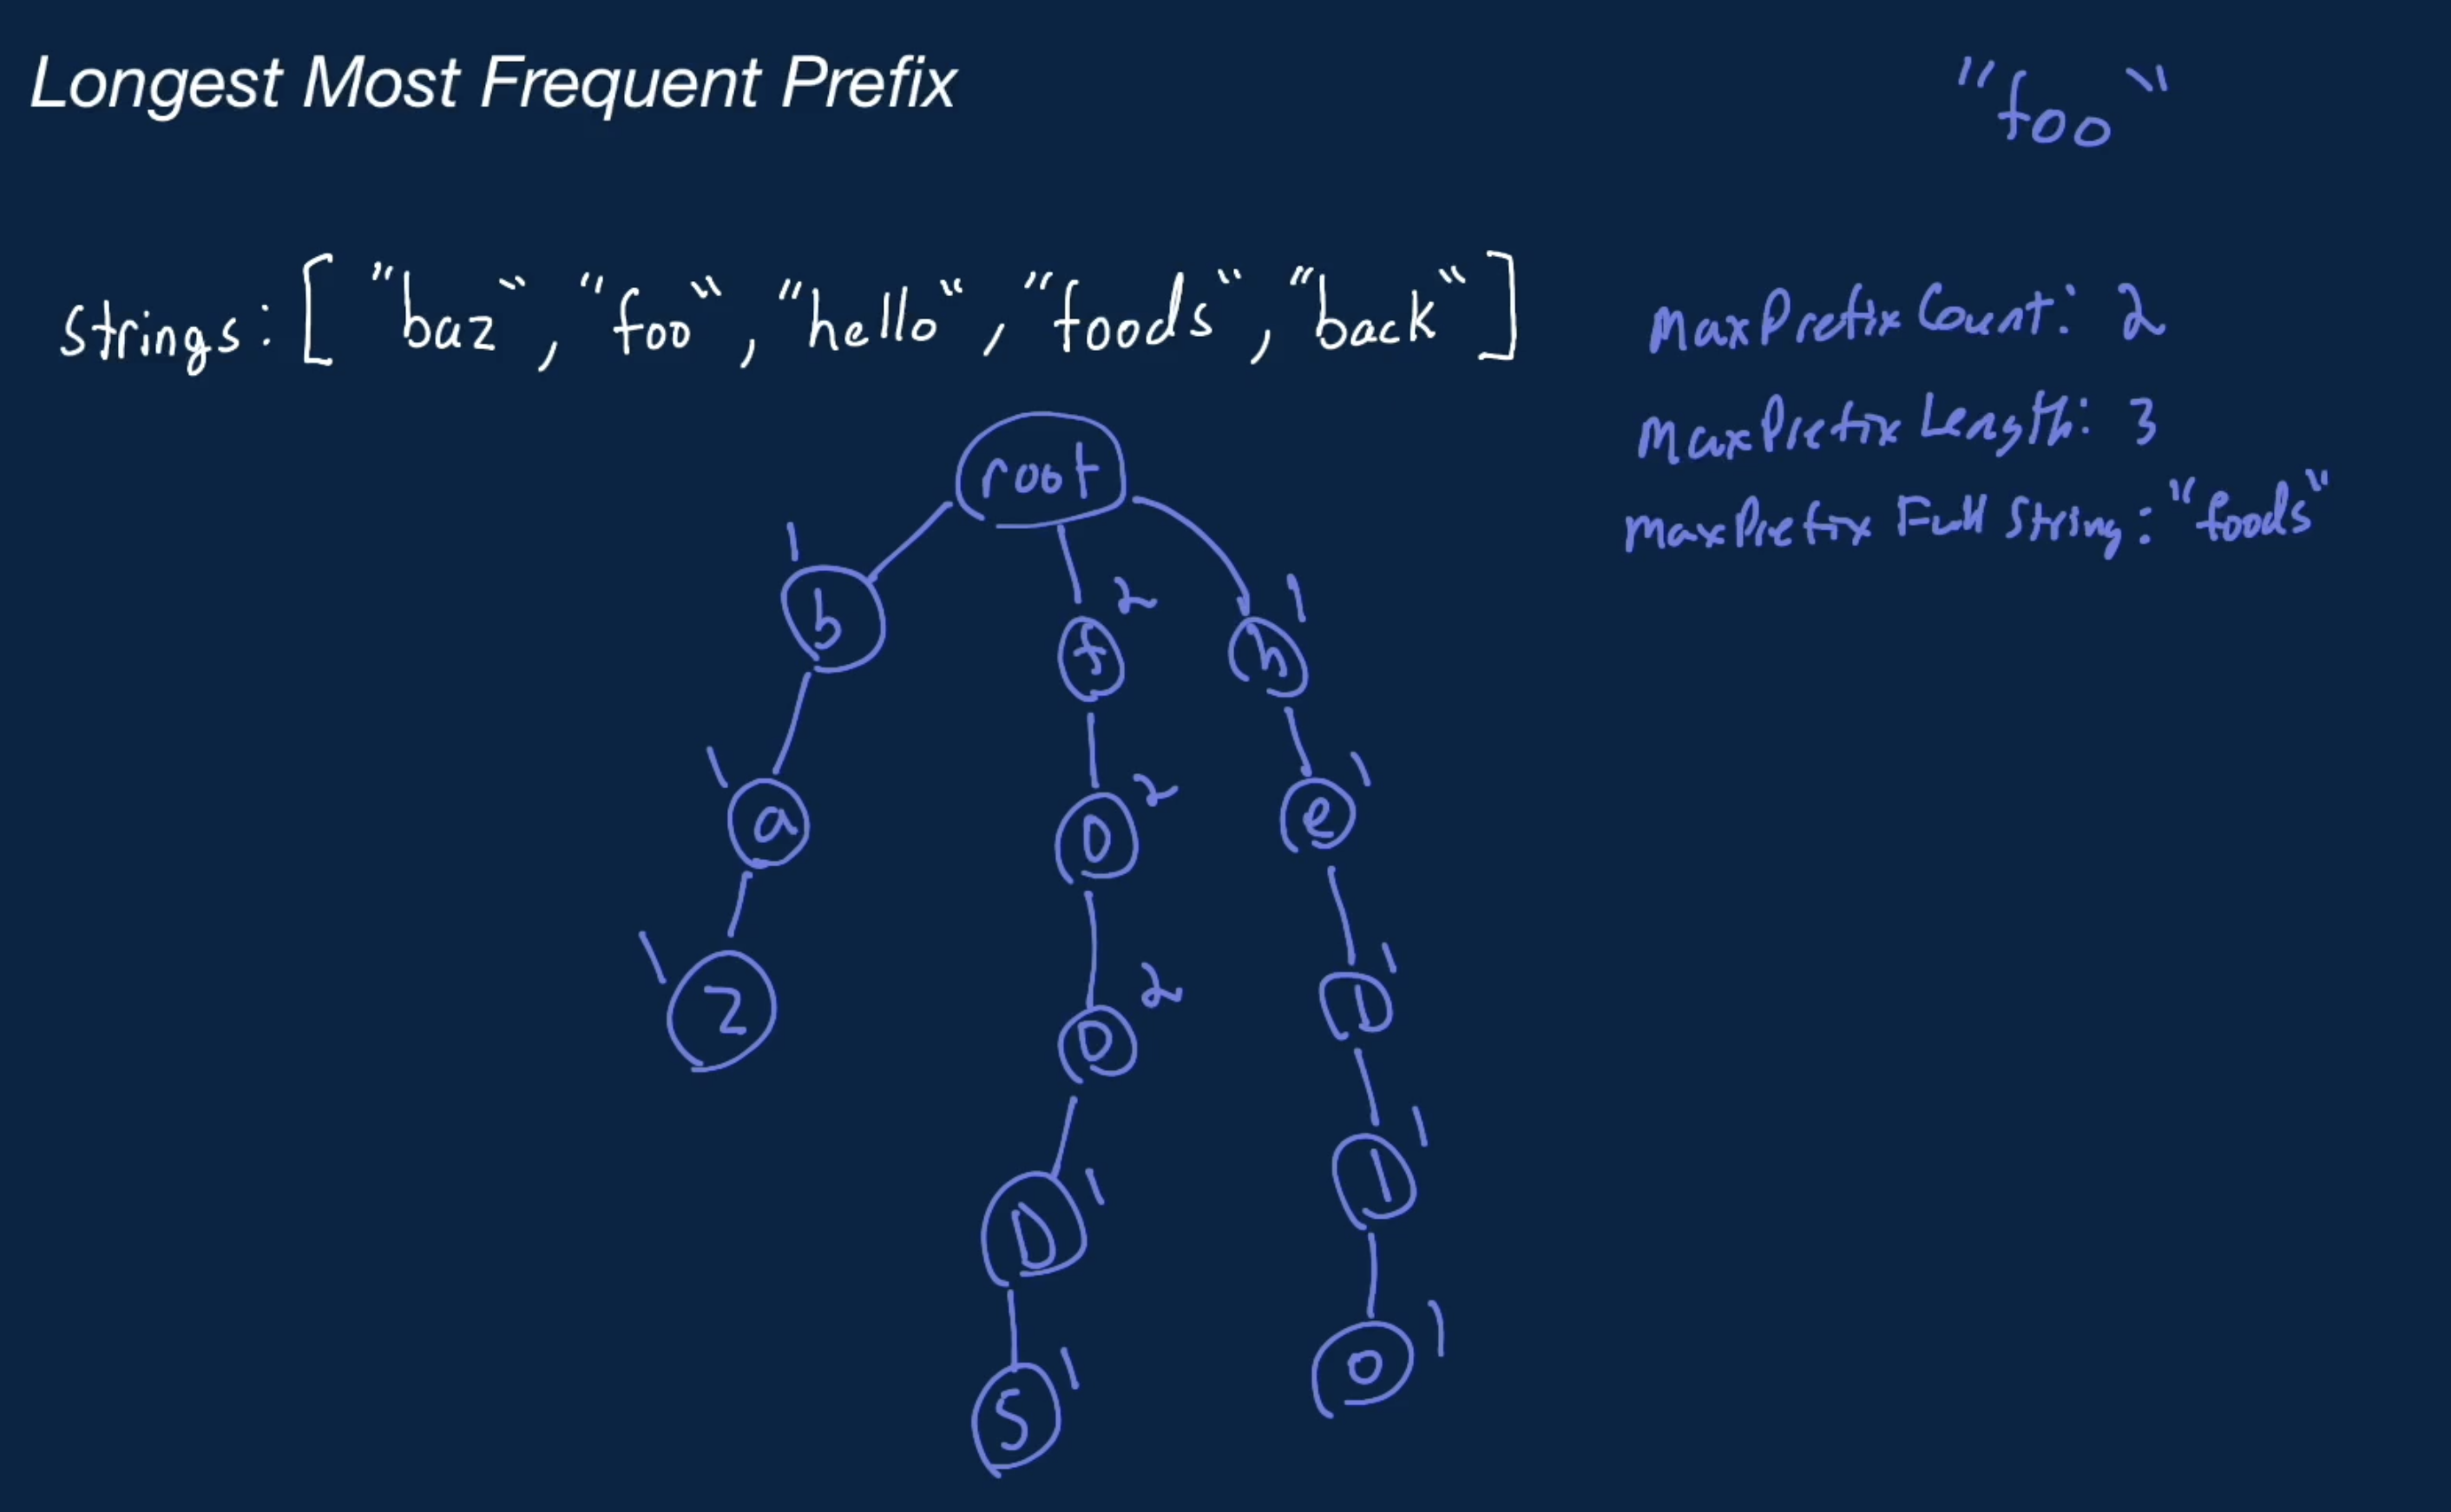 Longest Most Frequent Prefix
"foo"
strings: ["baz", "foo", "hello", "foods", "back"]
MaxPrefix Count: 2
MaxPrefix Length: 3
MaxPrefix Full String: "foods"
root
1 2 1
b f h
1 2 1
a o e
1 2 1
z o l
1 1
D l
1 1
S o